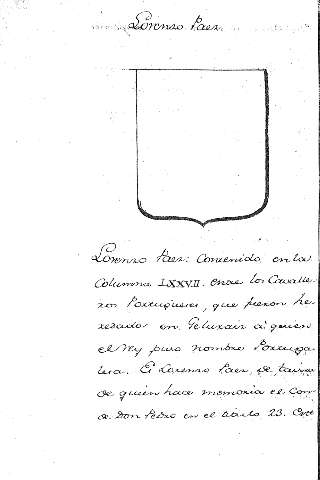 Lorenzo Paez.
Lorenzo Paez: Contenido en la
Columna LXXVII. entre los Cavalle-
ros Portugueses, que fueron he-
redados en à quien
el Rey puso nombre Portuga-
lesa. El Lorenzo Paez, de
de quien hace memoria el Con-
de Don Pedro en el titulo 23. Este